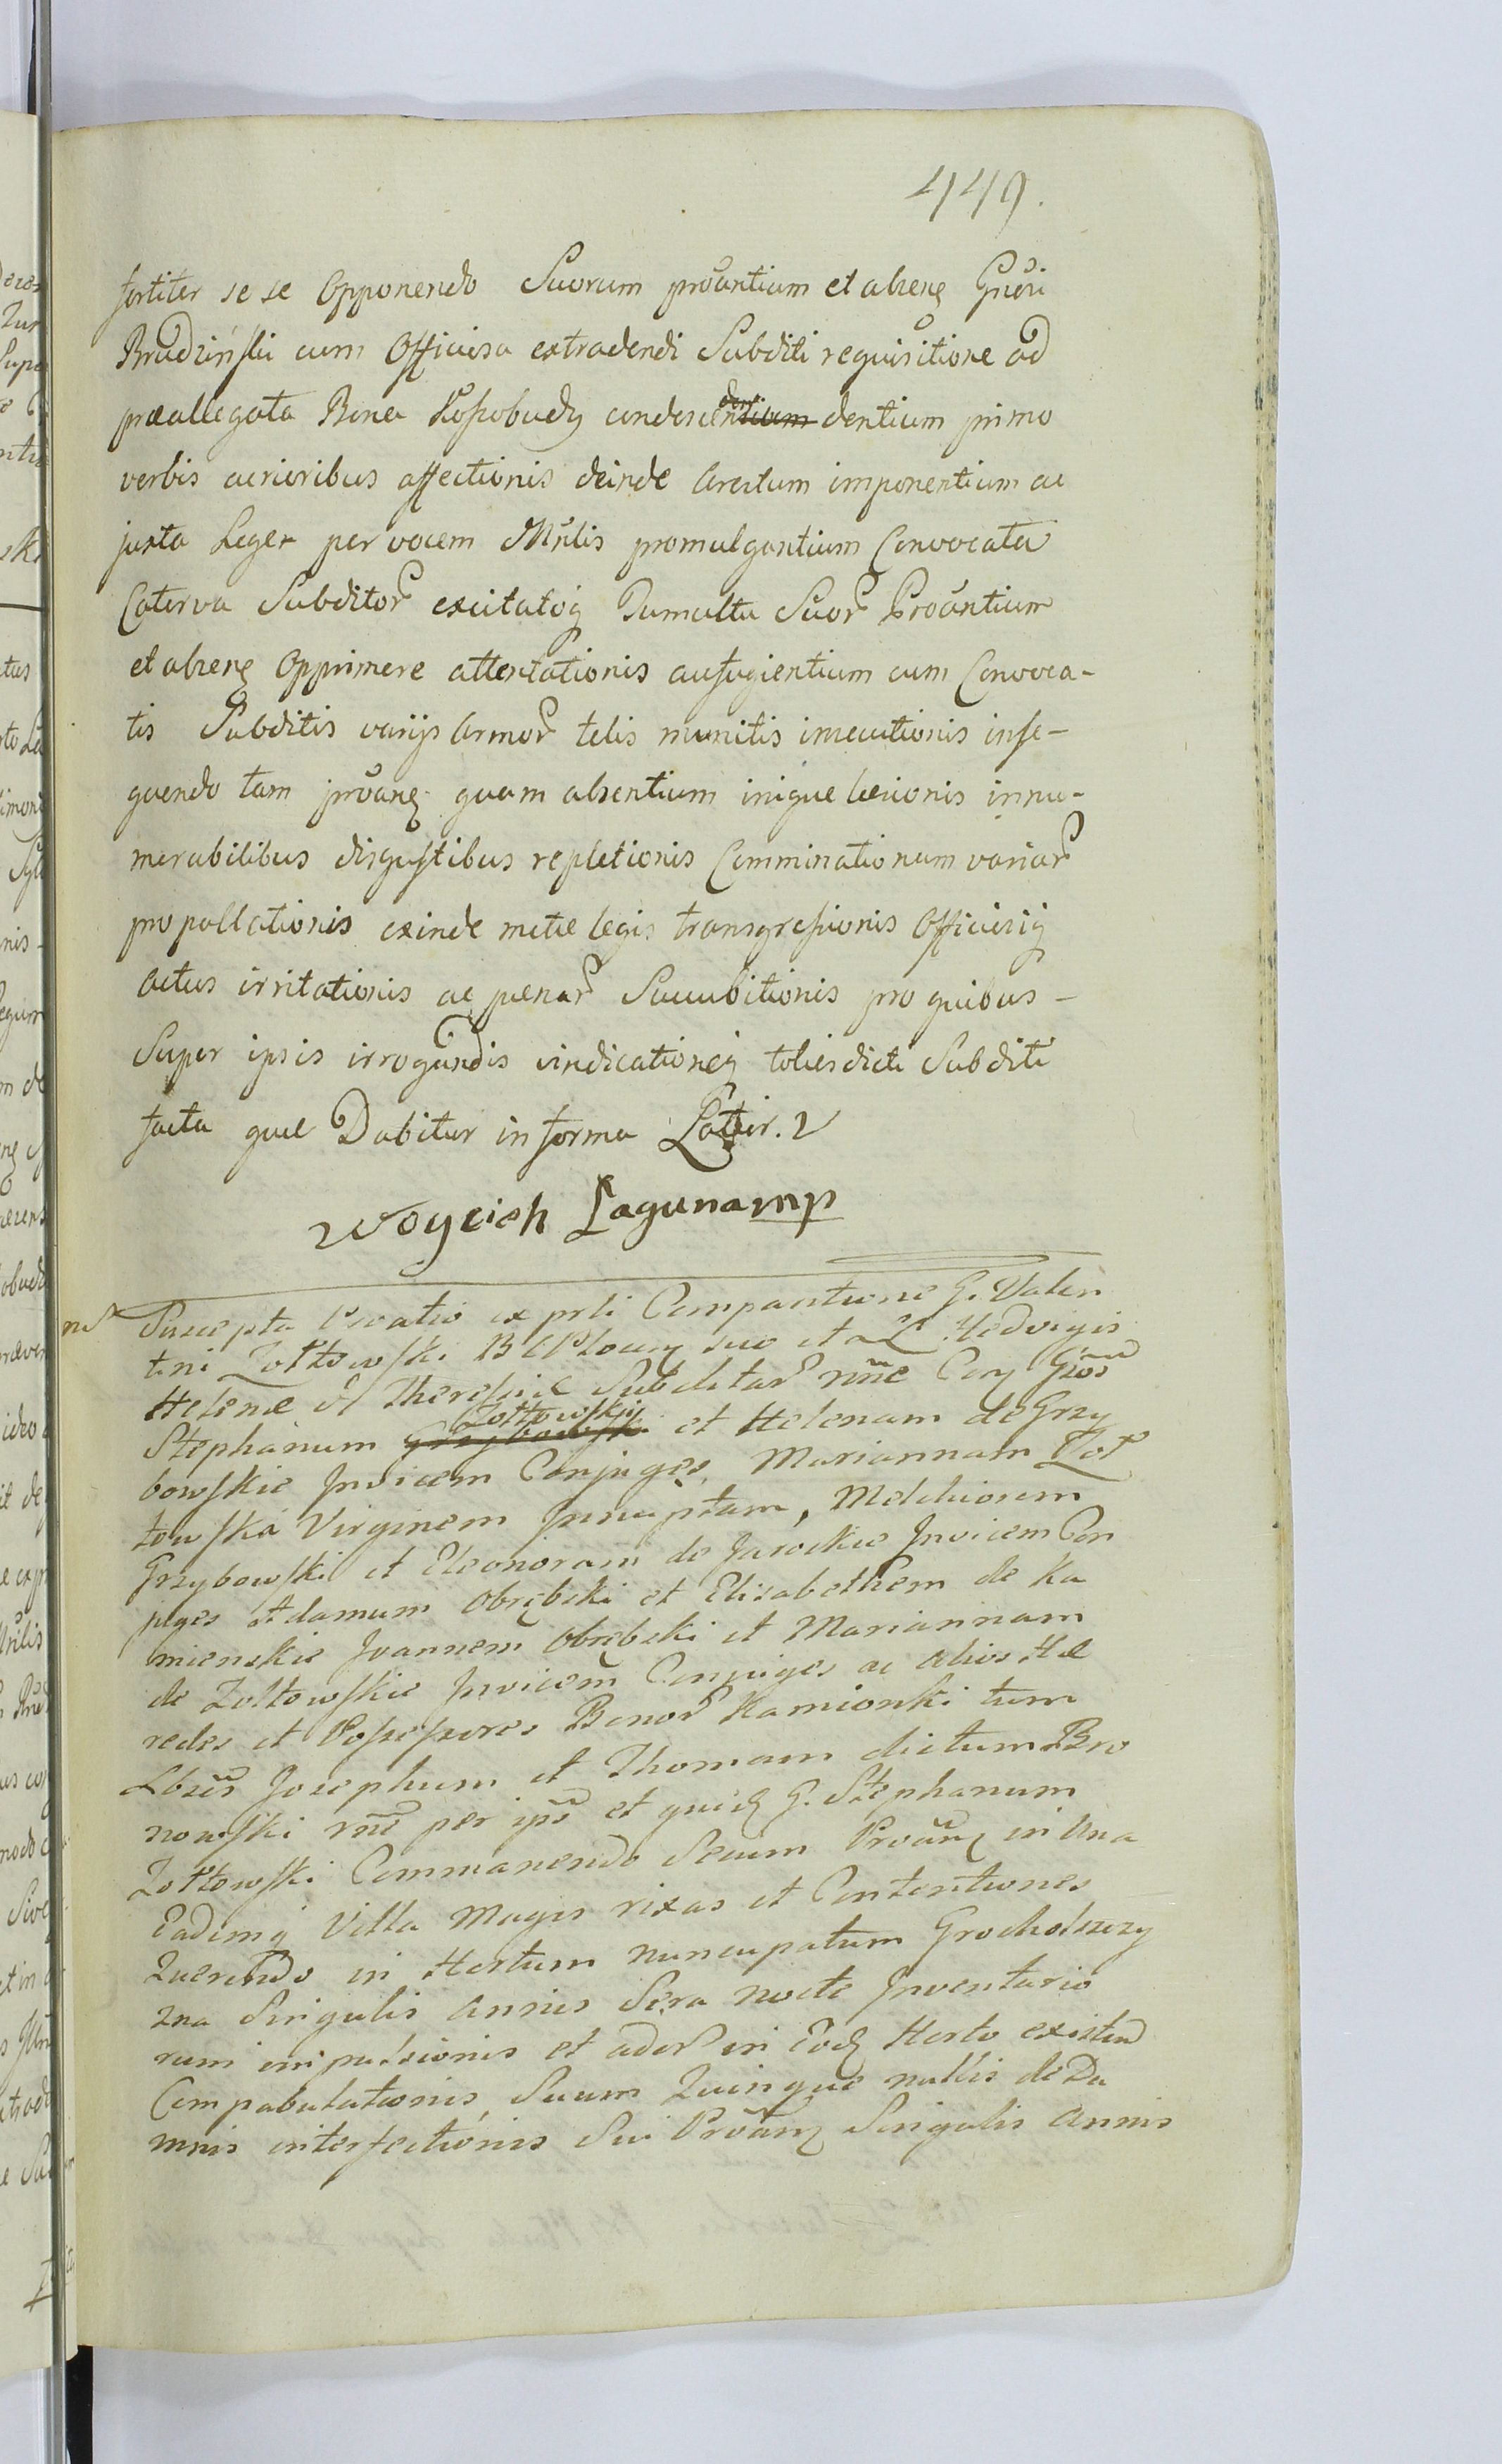 449.
fortiter se se Opponendo Suorum prõantium et absenę Gnõri
Brudziński cum Officiosa extradendi Subditi requisitione ad
præallegata Bona Kossobudy condescen den dentium primo
verbis acrioribus affectionis deinde Arestum imponentium ac
juxta Leges per vocem Mnlis promulgantium Convocata
Caterva Subditor excitatoq Tumultu Suor Proãntium
et absenę Opprimere attentationis aufugientium cum Convoca-
tis Subditis varijs Armor telis munitis insecutionis inse-
quendo tam proãnę quam absentium inique læsionis innu-
merabilibus disgustibus repletionis Comminationum variar
propallationis exinde metæ legis transgressionis Officiosiq
Actus irritationis ac pænar Succubitionis pro quibus -
Super ipsis irrogandis vindicationeq totiesdicti Subditi
facta quæ Dabitur in forma Latior.
Woyciech Lagunamp
Suscepta Vocatio ex prli Comparitione G. Valen
tini Zołtowski suo et Hedvigis
Helenæ & Theressiæ Subditar nñe Gños
Stephanum Grzybowski Zołtowskij et Helenam de Grzy
bowskie Invicem Conjuges, Mariannam Zoł
towska Virginem Innuptam, Melchiorem
Grzybowski et Eleonoram de Jarockie Invicem Con
juges Adamum Obrębski et Elisabethem de Ka
mienskie Joannem Obrębski et Mariannam
de Zołtowskie Invicem Conjuges ac alios Hæ
redes et Possessores Bonor Kamionki tum
Lbses Josephum et Thomam dictum Bro
nowski nñe per ips et quidę G. Stephanum
Zołtowski Commanendo Secum Proãnę in Una
Eademq Villa Magis rixas et Contentiones
Querendo in Hortum nuncupatum Grocholszczy
zna Singulis Annis Sera nocte Inventario
rum impulsionis et ador in Eodę Horto existend
Compabulationis, Suum Quinque nullis de Da
mnis interfectionis Sui Proãnę Singulis Annis